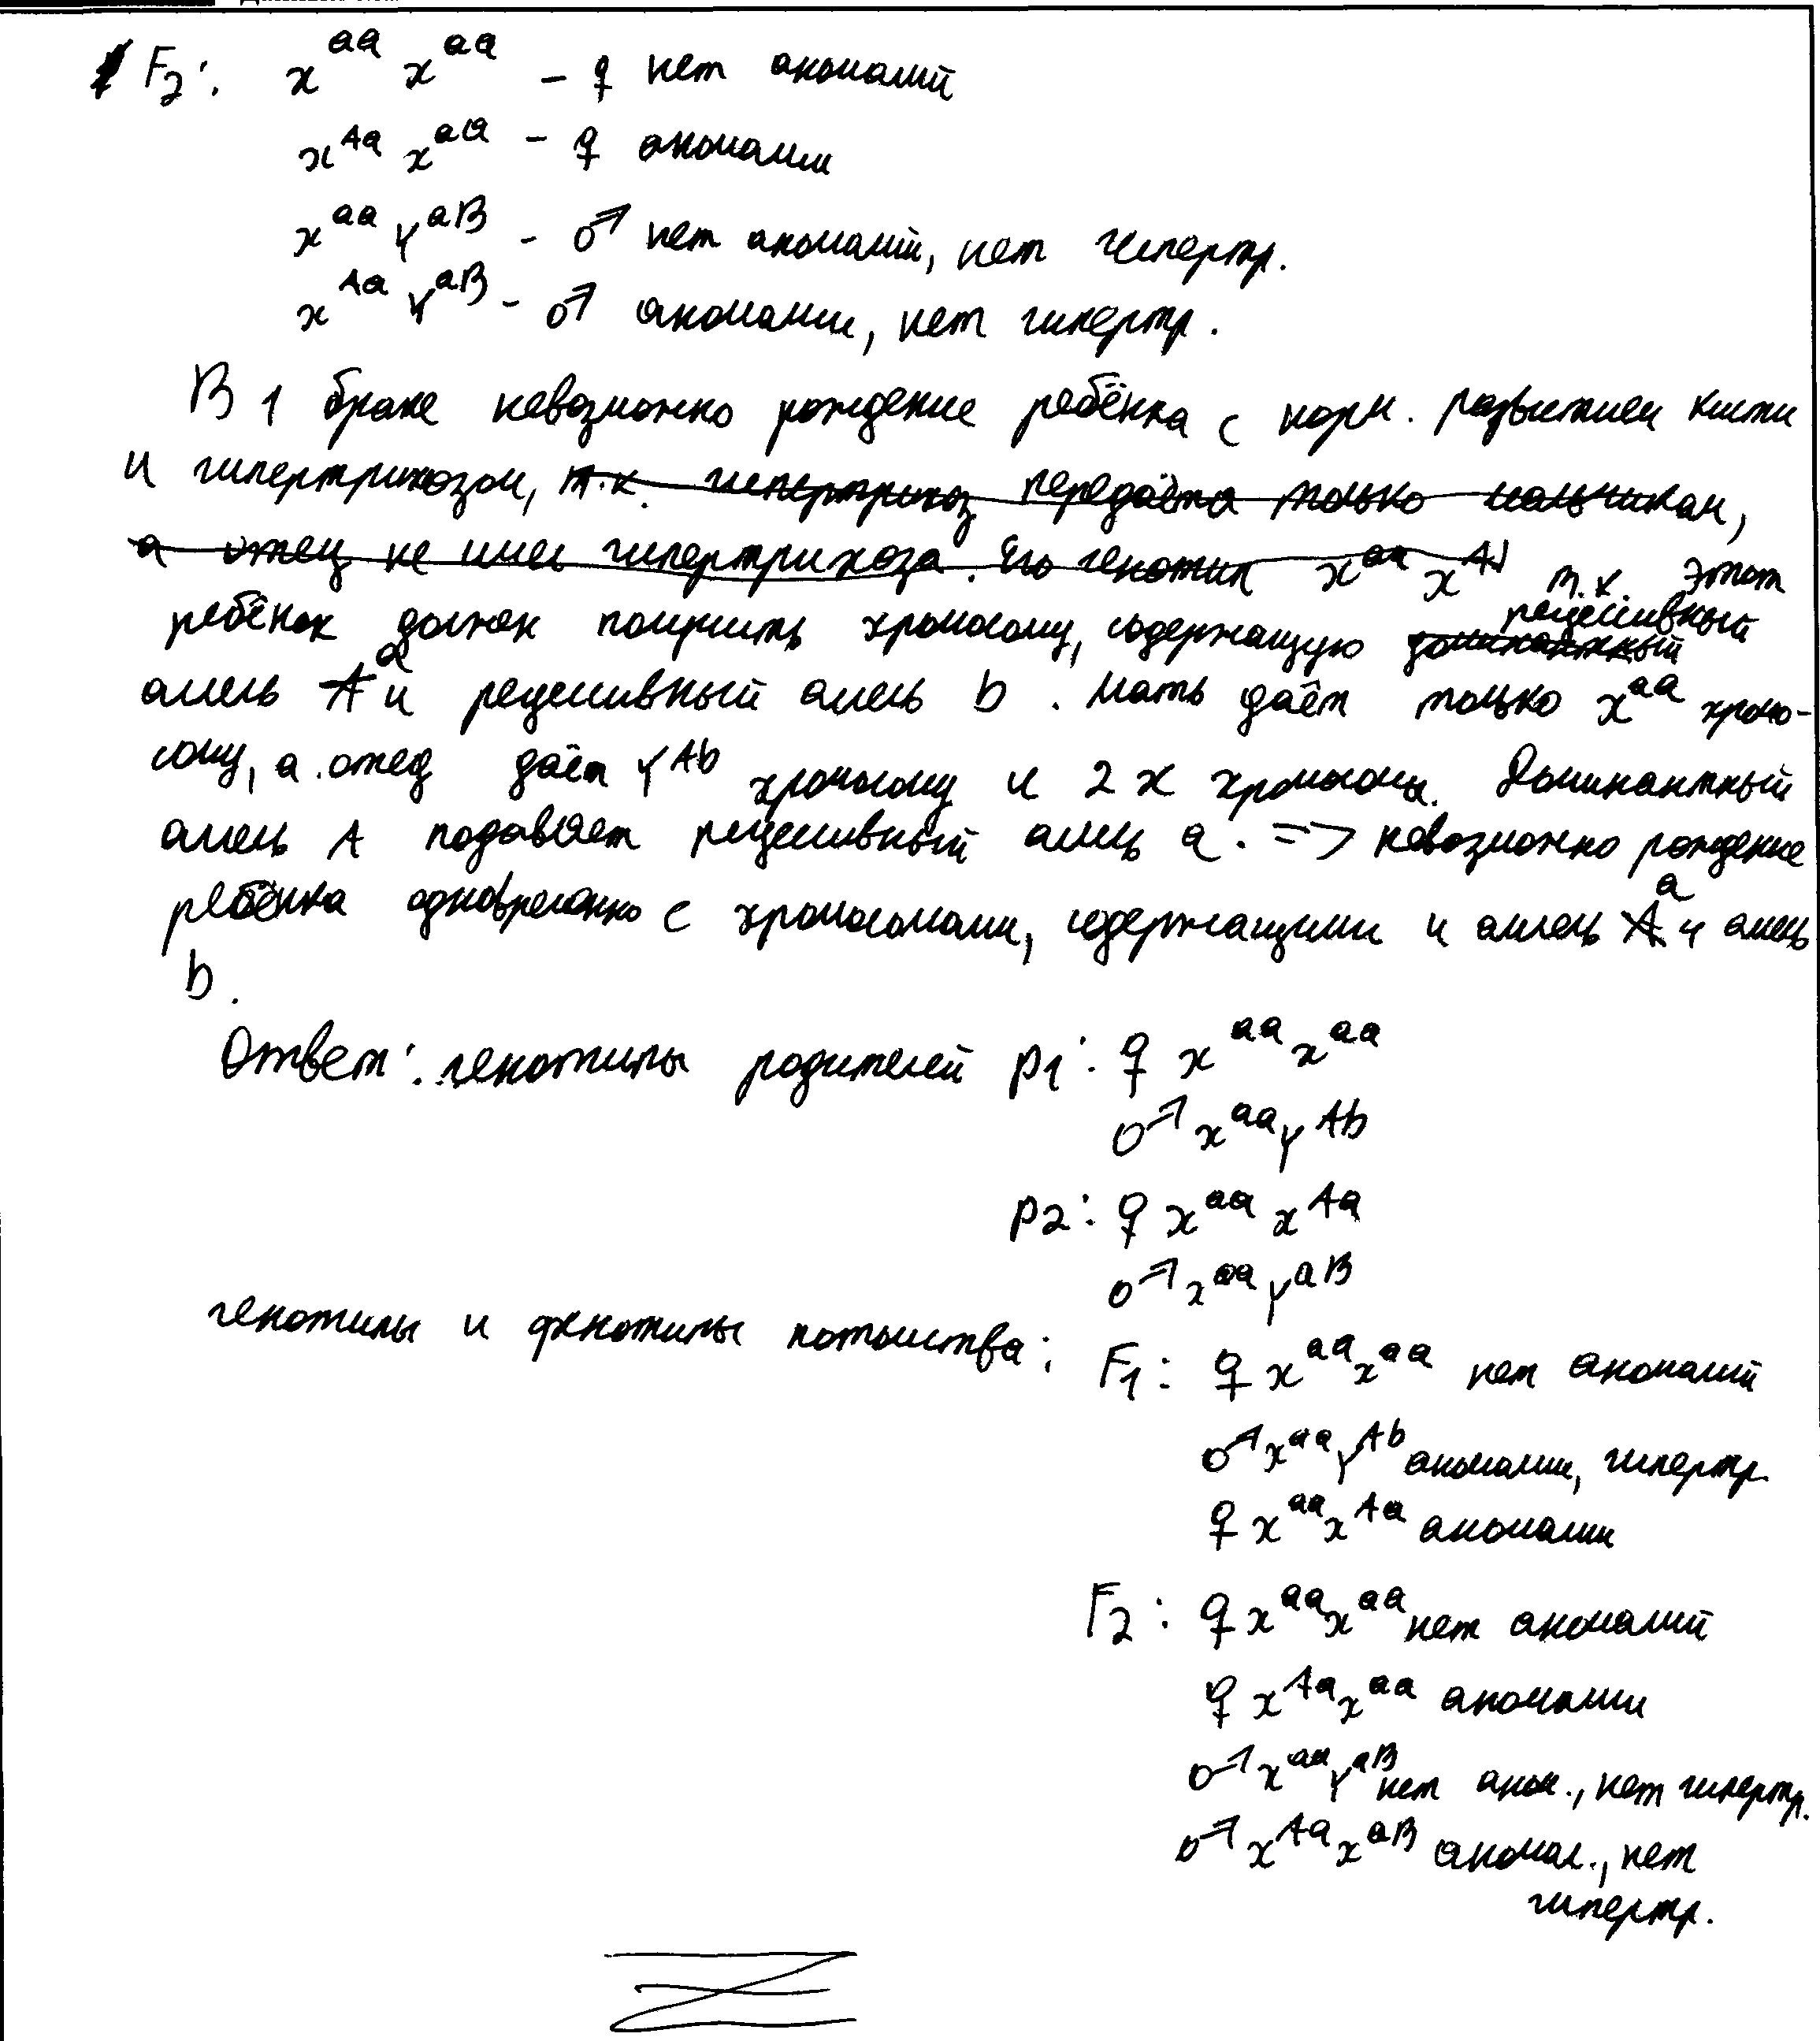 F2: x^aa x^aa - ♀ нет аномалий
x^Aa x^aa - ♀ аномалии
x^aa Y^aB - ♂ нет аномалий, нет гипертр.
x^Aa Y^aB - ♂ аномалии, нет гипертр.
В 1 браке невозможно рождение ребёнка с норм. развитием кисти
и гипертрихозом, т.к. гипертрихоз передаётся только мальчикам,
а отец не имел гипертрихоза. Его генотип x^aa x^A т.к. этот
рецессивный
ребёнок должен получить хромосому, содержащую доминантный
a
аллель A и рецессивный аллель b. Мать даёт только x^aa хромо-
сому, а отец даёт Y^Ab хромосому и 2 x хромосомы. Доминантный
аллель A подавляет рецессивный аллель a. => невозможно рождение
a
ребёнка одновременно с хромосомами, содержащими и аллель A и аллель
b.
Ответ: генотипы родителей P1: ♀ x^aa x^aa
♂ x^aa Y^Ab
P2: ♀ x^aa x^Aa
♂ x^aa Y^aB
генотипы и фенотипы потомства: F1: ♀ x^aa x^aa нет аномалий
♂ x^aa Y^Ab аномалии, гипертр.
♀ x^aa x^Aa аномалии
F2: ♀ x^aa x^aa нет аномалий
♀ x^Aa x^aa аномалии
♂ x^aa Y^aB нет аном., нет гипертр.
♂ x^Aa x^aB аномал., нет
гипертр.